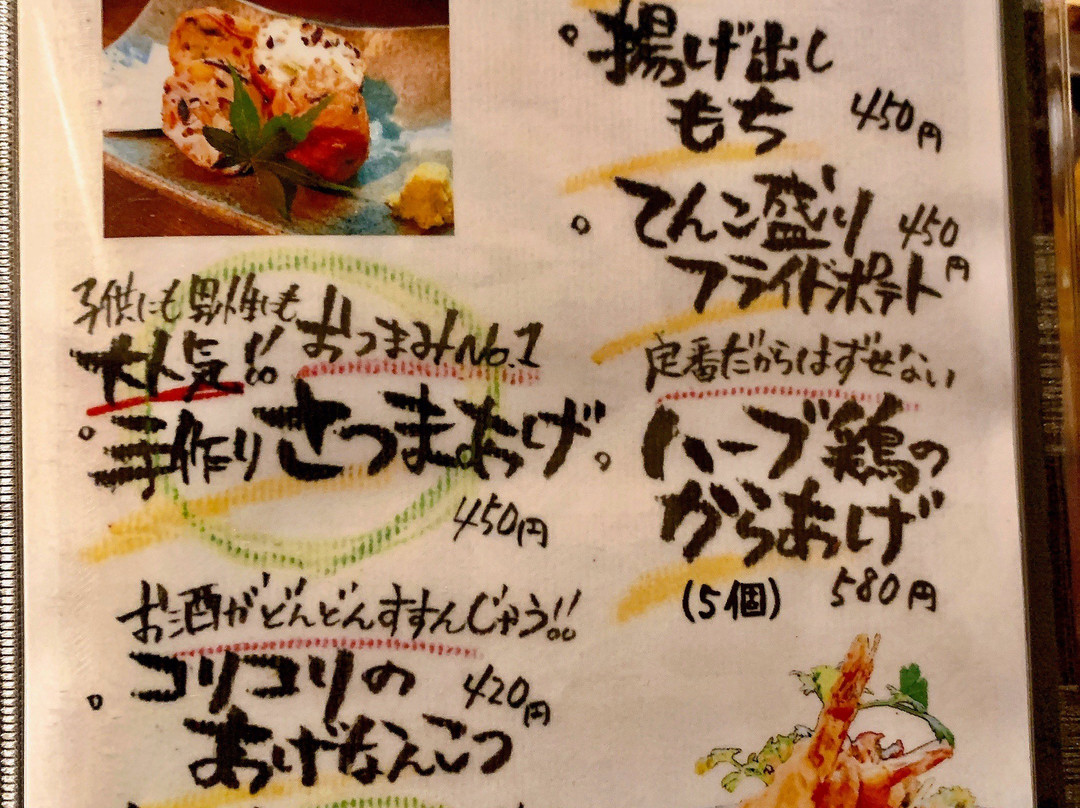 揚げ出し
もち 450円
てんこ盛り 450円
フライドポテト
定番だからはずせない
ハーブ鶏の
からあげ
(5個) 580円
子供にも男性にも
大人気!! おつまみNo.1
手作りさつまあげ
450円
お酒がどんどんすすんじゃう!!
コリコリの 420円
あげなんこつ